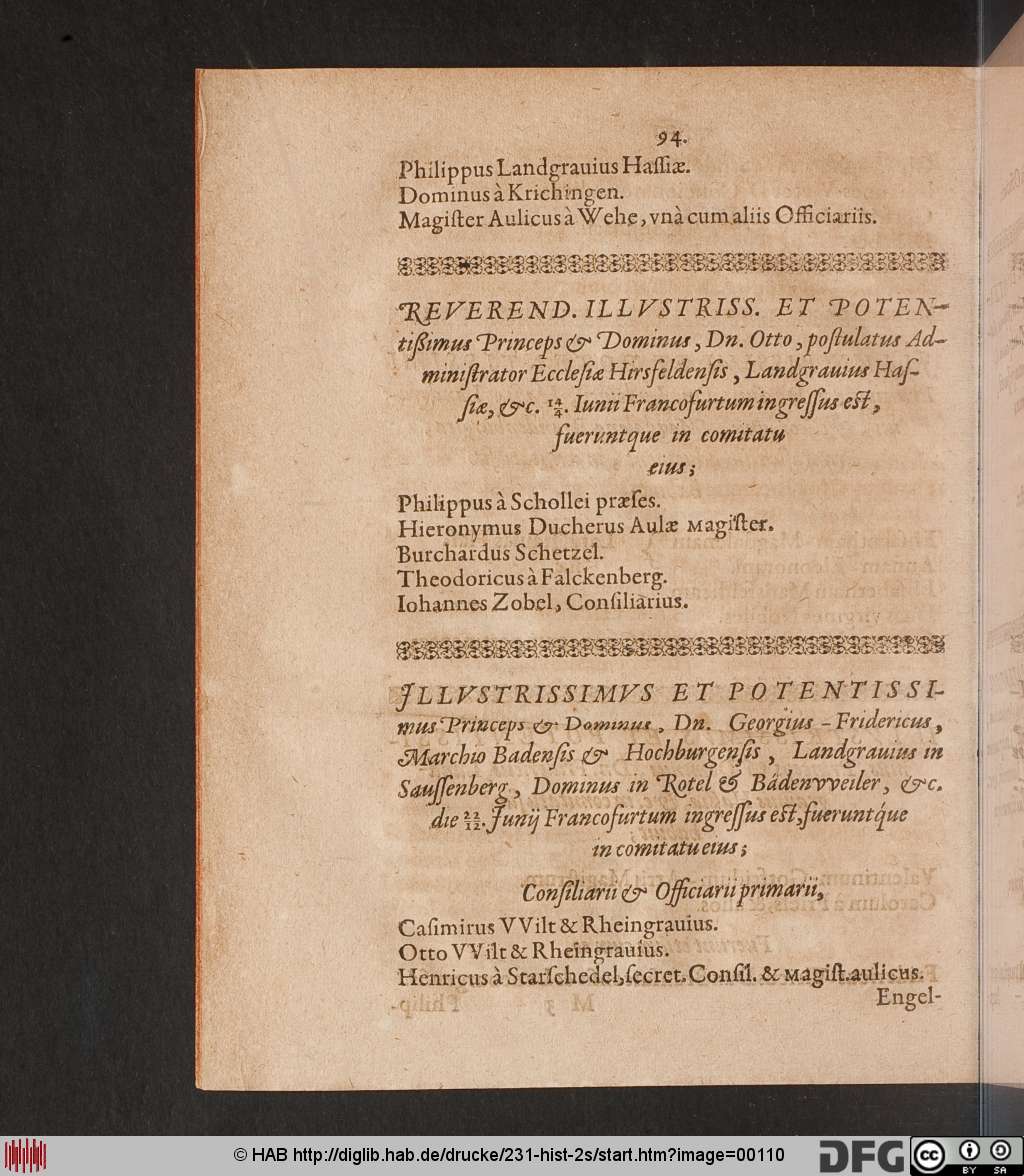 94.
Philippus Landgrauius Haſſiæ.
Dominus à Krichingen.
Magiſter Aulicus à Wehe, vnà cum aliis Officiariis.
REVEREND. ILLVSTRISS. ET POTEN-
tißimus Princeps & Dominus, Dn. Otto, poſtulatus Ad-
miniſtrator Eccleſiæ Hirsfeldenſis, Landgrauius Haſ-
ſiæ, &c. 14/4. Iunii Francofurtum ingreſſus eſt,
fueruntque in comitatu
eius;
Philippus à Schollei præſes.
Hieronymus Ducherus Aulæ Magiſter.
Burchardus Schetzel.
Theodoricus à Falckenberg.
Iohannes Zobel, Conſiliarius.
ILLVSTRISSIMVS ET POTENTISSI-
mus Princeps & Dominus, Dn. Georgius-Fridericus,
Marchio Badenſis & Hochburgenſis, Landgrauius in
Sauſſenberg, Dominus in Rotel & Bädenvveiler, &c.
die 22/12. Junij Francofurtum ingreſſus eſt, fueruntq́ue
in comitatu eius;
Conſiliarii & Officiarii primarii,
Caſimirus VVilt & Rheingrauius.
Otto VVilt & Rheingrauius.
Henricus à Starſchedel, ſecret. Conſil. & Magiſt. aulicus.
Engel-
© HAB http://diglib.hab.de/drucke/231-hist-2s/start.htm?image=00110
DFG
cc
BY SA